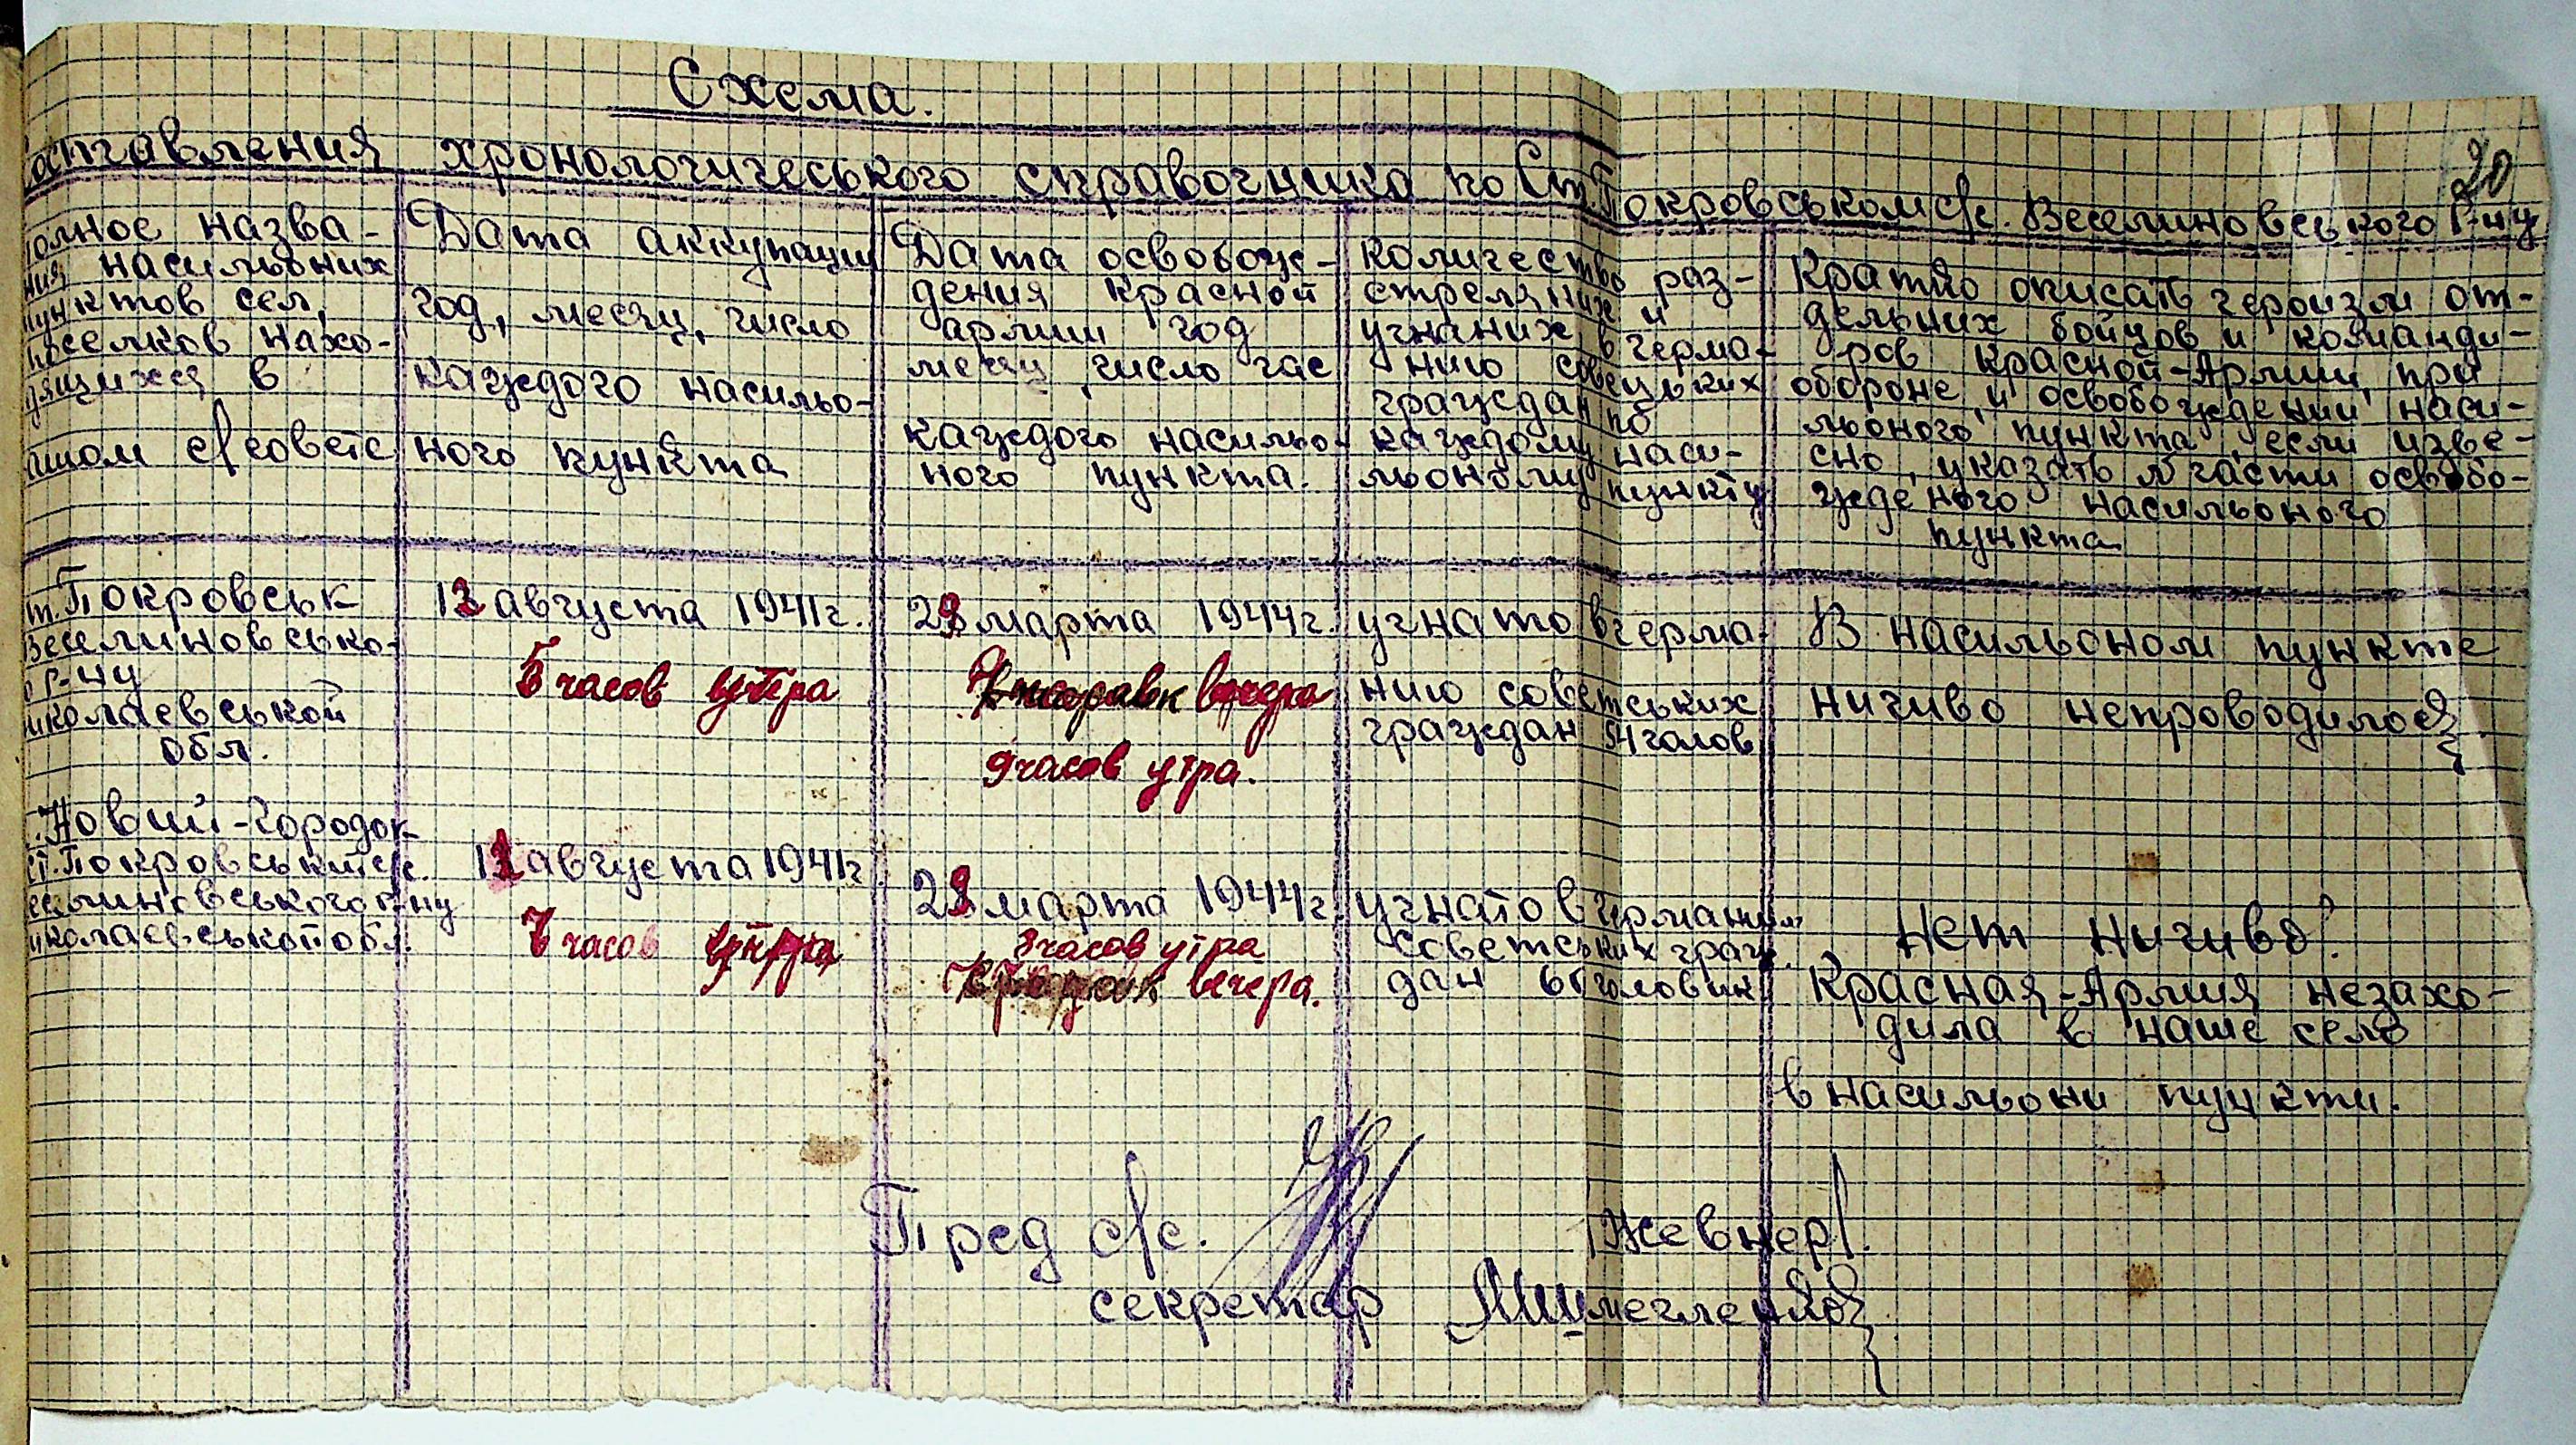 Схема.
20
Составления хронологичеського справочника по Ст. Покровськом с/с. Веселиновського Р-ну
полное назва-
ния насильоних
пунктов сел,
поселков нахо-
дящихся в
вашом с/совете
Дата аккупации
год, месяц, число
каждого насильо-
ного пункта
Дата освобож-
дения красной
армии год
месяц, число час
каждого насильо-
ного пункта.
Количество раз-
стреляних и
угнаних в герма-
нию совецьких
граждан по
каждому наси-
льоному пункту
Кратко описать героизм от-
дельних бойцов и команди-
ров красной-Армии, при
обороне, и освобождении наси-
льоного пункта, если изве-
сно, указать № части освобо-
жденого насильоного
пункта.
ст. Покровськ
Веселиновсько-
го р-ну
Николаевськой
обл.
12 августа 1941г.
5 часов утра
29 марта 1944г.
вечера
9 часов утра.
угнато в герма-
нию советських
граждан 54 голов
В насильоном пункте
ничиво непроводилося
Новий-Городок
ст. Покровський с/с.
Веселиновського р-ну
Николаевськой обл.
11 августа 1941г
7 часов утра
29 марта 1944г.
8 часов утра
вечера.
угнато в германию
советських граж-
дан 6 головик
Нет ничиво!
Красная-Армия незахо-
дила в наше село
в насильони пункти.
Пред с/с. /Жевнер/.
секретар